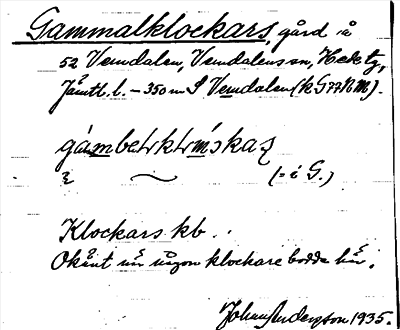 Gammalklockars, gård i å
52 Vemdalen, Vemdalens sn, Hede tg,
Jämtl. l. – 350 m S Vemdalen (k G77NM).
(= i G.)
Klockars kb.
Okänt när någon klockare bodde här.
Johan Andersson 1935.